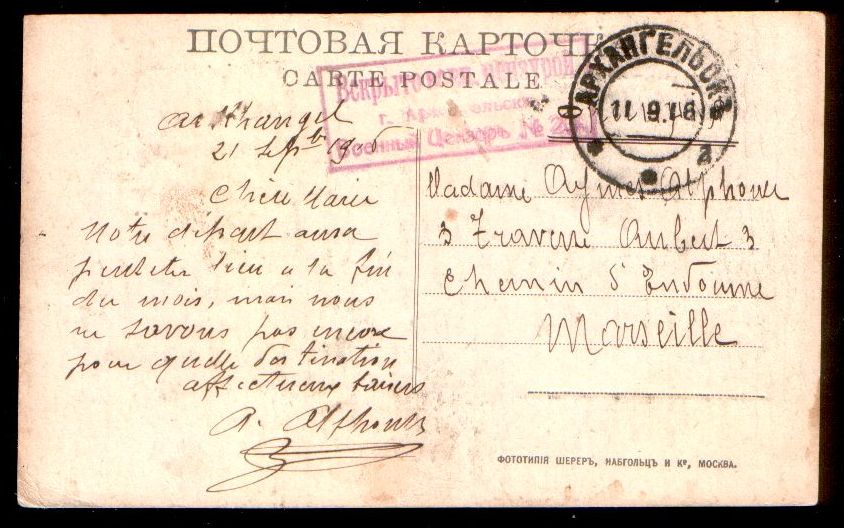 ПОЧТОВАЯ КАРТОЧК
CARTE POSTALE
Вскрыто
г. Архангельск
Военный Цензоръ №
АРХАНГЕЛЬСКЪ
11 9.16
а
Arkhangel
21 Sept
Chère Marie
Notre départ aura
peut etre lieu a la fin
du mois, mais nous
ne savons pas encore
pour quelle destination
affectueux baisers
A. Alphonse
Madame Aymes Alphonse
3 Traverse Aubert 3
Chemin d'Endoume
Marseille
ФОТОТИПІЯ ШЕРЕРЪ, НАБГОЛЬЦЪ И Кº, МОСКВА.